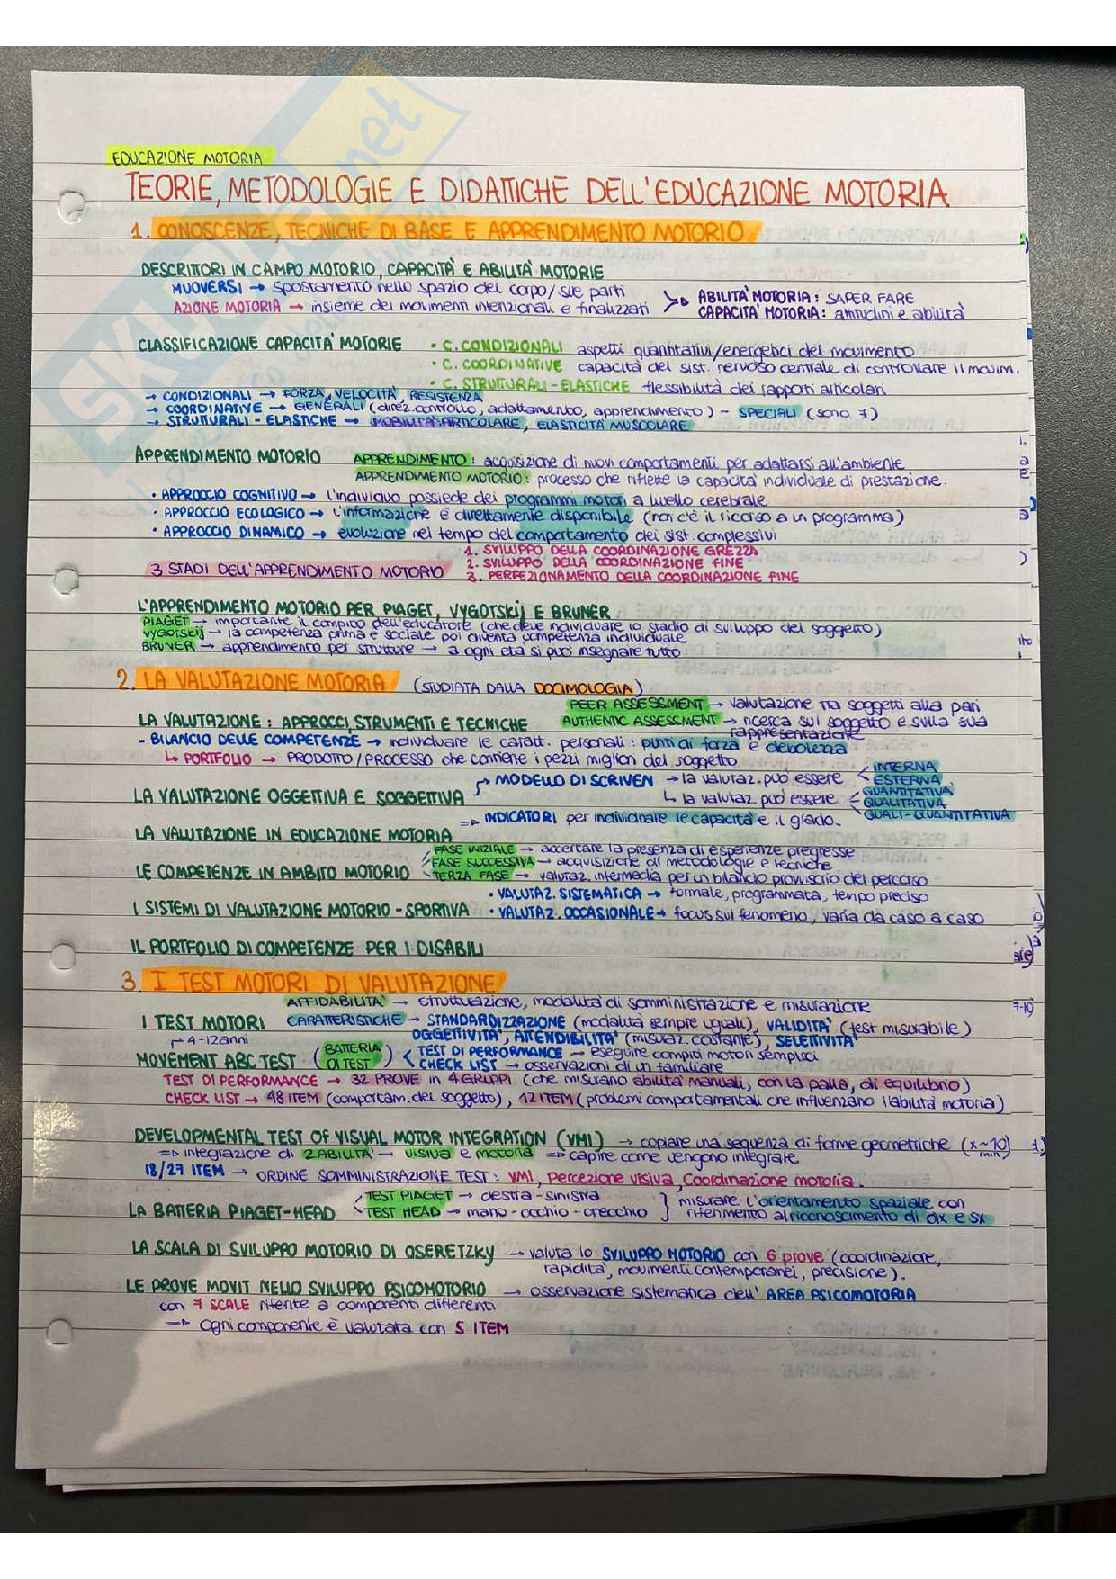 EDUCAZIONE MOTORIA
TEORIE, METODOLOGIE E DIDATTICHE DELL'EDUCAZIONE MOTORIA
1. CONOSCENZE, TECNICHE DI BASE E APPRENDIMENTO MOTORIO
DESCRITTORI IN CAMPO MOTORIO, CAPACITÀ E ABILITÀ MOTORIE
MUOVERSI → spostamento nello spazio del corpo/sue parti
AZIONE MOTORIA → insieme dei movimenti intenzionali e finalizzati
ABILITÀ MOTORIA: SAPER FARE
CAPACITÀ MOTORIA: attitudini e abilità
CLASSIFICAZIONE CAPACITÀ MOTORIE • C. CONDIZIONALI aspetti quantitativi/energetici del movimento
• C. COORDINATIVE capacità del sist. nervoso centrale di controllare il movim.
• C. STRUTTURALI-ELASTICHE flessibilità dei rapporti articolari
→ CONDIZIONALI → FORZA, VELOCITÀ, RESISTENZA
→ COORDINATIVE → GENERALI (direz. controllo, adattamento, apprendimento) - SPECIALI (sono 7)
→ STRUTTURALI-ELASTICHE → MOBILITÀ ARTICOLARE, ELASTICITÀ MUSCOLARE
APPRENDIMENTO MOTORIO APPRENDIMENTO: acquisizione di nuovi comportamenti per adattarsi all'ambiente
APPRENDIMENTO MOTORIO: processo che riflette la capacità individuale di prestazione.
• APPROCCIO COGNITIVO → l'individuo possiede dei programmi motori a livello cerebrale
• APPROCCIO ECOLOGICO → l'informazione è direttamente disponibile (non c'è il ricorso a un programma)
• APPROCCIO DINAMICO → evoluzione nel tempo del comportamento dei sist. complessivi
3 STADI DELL'APPRENDIMENTO MOTORIO
1. SVILUPPO DELLA COORDINAZIONE GREZZA
2. SVILUPPO DELLA COORDINAZIONE FINE
3. PERFEZIONAMENTO DELLA COORDINAZIONE FINE
L'APPRENDIMENTO MOTORIO PER PIAGET, VYGOTSKIJ E BRUNER
PIAGET → importante il compito dell'educatore (che deve individuare lo stadio di sviluppo del soggetto)
VYGOTSKIJ → la competenza prima è sociale poi diventa competenza individuale
BRUNER → apprendimento per strutture → a ogni età si può insegnare tutto
2. LA VALUTAZIONE MOTORIA (STUDIATA DALLA DOCIMOLOGIA)
PEER ASSESSMENT → valutazione tra soggetti alla pari
LA VALUTAZIONE: APPROCCI, STRUMENTI E TECNICHE AUTHENTIC ASSESSMENT → ricerca sul soggetto e sulla sua rappresentazione
- BILANCIO DELLE COMPETENZE → individuare le caratt. personali: punti di forza e debolezza
↳ PORTFOLIO → PRODOTTO/PROCESSO che contiene i pezzi migliori del soggetto
LA VALUTAZIONE OGGETTIVA E SOGGETTIVA
MODELLO DI SCRIVEN → la valutaz. può essere INTERNA ESTERNA
↳ la valutaz. può essere QUANTITATIVA QUALITATIVA QUALI-QUANTITATIVA
⇒ INDICATORI per individuare le capacità e il grado.
LA VALUTAZIONE IN EDUCAZIONE MOTORIA
LE COMPETENZE IN AMBITO MOTORIO
FASE INIZIALE → accertare la presenza di esperienze pregresse
FASE SUCCESSIVA → acquisizione di metodologie e tecniche
TERZA FASE → valutaz. intermedia per un bilancio provvisorio del percorso
I SISTEMI DI VALUTAZIONE MOTORIO-SPORTIVA
• VALUTAZ. SISTEMATICA → formale, programmata, tempo preciso
• VALUTAZ. OCCASIONALE → focus sul fenomeno, varia da caso a caso
IL PORTFOLIO DI COMPETENZE PER I DISABILI
3. I TEST MOTORI DI VALUTAZIONE
AFFIDABILITÀ → strutturazione, modalità di somministrazione e misurazione
I TEST MOTORI CARATTERISTICHE → STANDARDIZZAZIONE (modalità sempre uguali), VALIDITÀ (test misurabile)
OGGETTIVITÀ, ATTENDIBILITÀ (misuraz. costante), SELETTIVITÀ
4-12 anni
MOVEMENT ABC TEST (BATTERIA DI TEST)
TEST DI PERFORMANCE → eseguire compiti motori semplici
CHECK LIST → osservazioni di un familiare
TEST DI PERFORMANCE → 32 PROVE IN 4 GRUPPI (che misurano abilità manuali, con la palla, di equilibrio)
CHECK LIST → 48 ITEM (comportam. del soggetto), 12 ITEM (problemi comportamentali che influenzano l'abilità motoria)
DEVELOPMENTAL TEST OF VISUAL MOTOR INTEGRATION (VMI) → copiare una sequenza di forme geometriche (x~10 min)
⇒ integrazione di 2 ABILITÀ → visiva e motoria → capire come vengono integrate
18/27 ITEM → ORDINE SOMMINISTRAZIONE TEST: VMI, Percezione visiva, Coordinazione motoria.
LA BATTERIA PIAGET-HEAD
TEST PIAGET → destra-sinistra
TEST HEAD → mano-occhio-orecchio
misurare l'orientamento spaziale con riferimento al riconoscimento di dx e sx
LA SCALA DI SVILUPPO MOTORIO DI OSERETZKY → valuta lo SVILUPPO MOTORIO con 6 prove (coordinazione, rapidità, movimenti contemporanei, precisione).
LE PROVE MOVIT NELLO SVILUPPO PSICOMOTORIO → osservazione sistematica dell'AREA PSICOMOTORIA
con 7 SCALE riferite a componenti differenti
→ Ogni componente è valutata con 5 ITEM